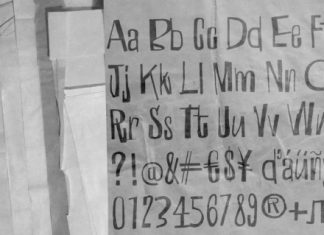 Aa Bb Cc Dd Ee F
Jj Kk Ll Mm Nn O
Rr Ss Tt Uu Vv Ww
?!@&#€$¥ d'áüñ
0123456789®+